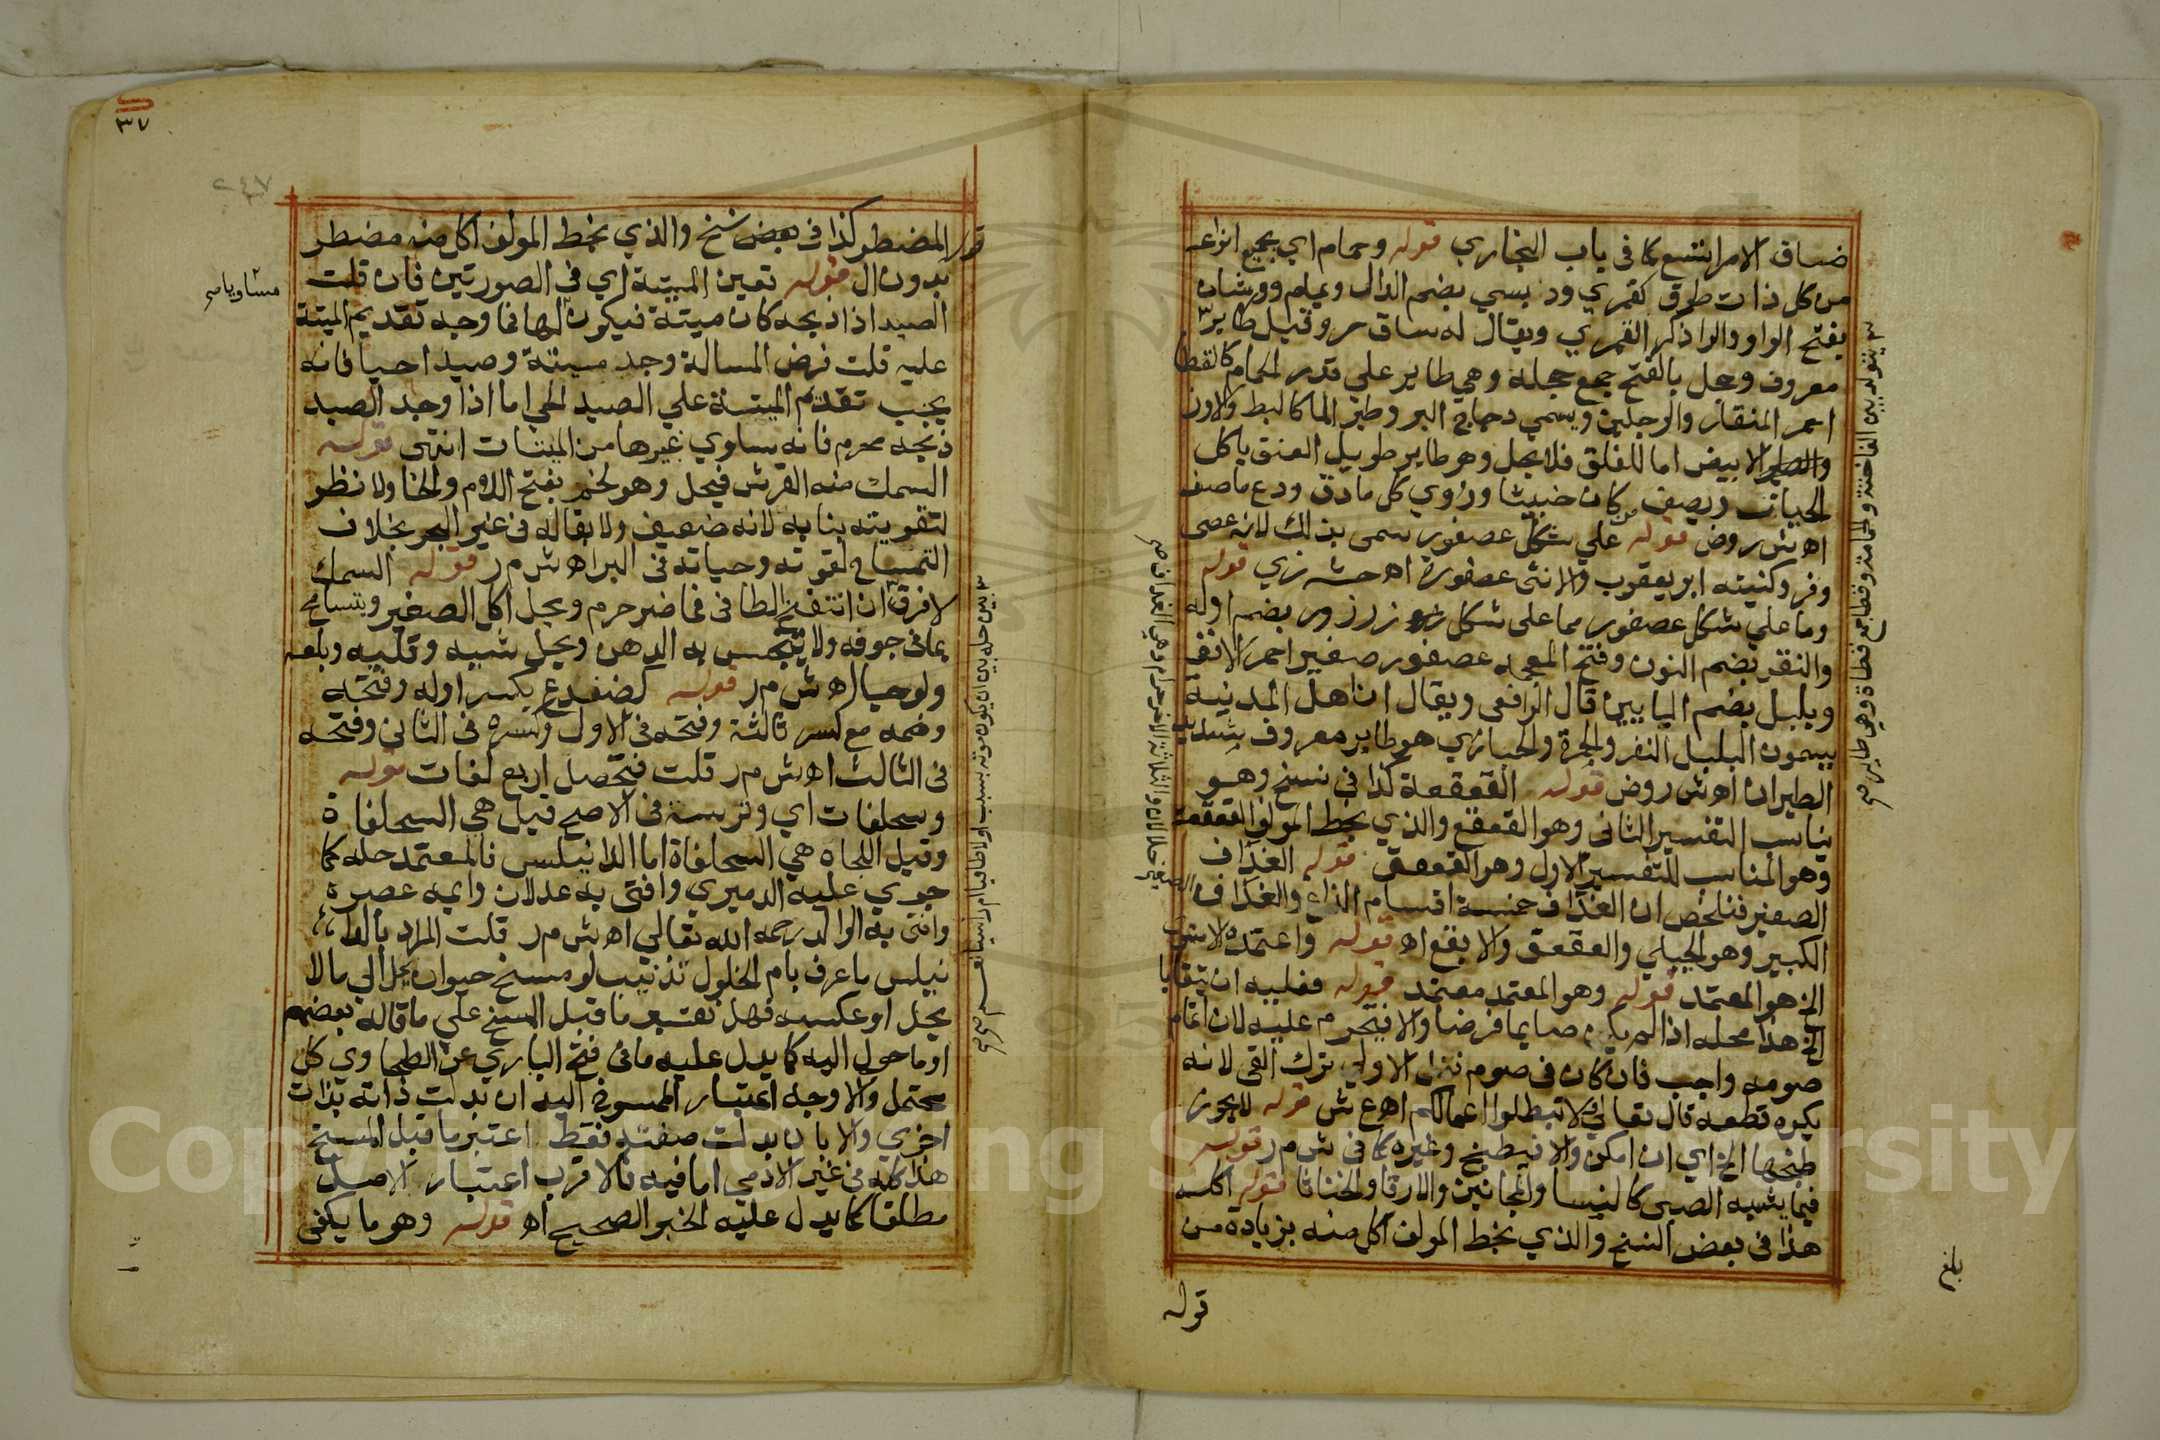 ضاق الامر اتسع كما في باب البخاري قوله وحمام اي بجميع انواعه
من كل ذات طوق كقمري ودبسي بضم الدال ويمام وورشان
بفتح الواو والرا ذكر القمري ويقال له ساق حر وقيل طاير
معروف وحجل بالفتح جمع حجلة وهي طاير علي قدر الحمام كالقطا
احمر المنقار والرجلين ويسمي دجاج البر وطير الما كالبط والاوز
والطير الابيض اما اللقلق فلا يحل وهو طاير طويل العنق ياكل
الحيات ويصف كان خبيثا وروي كل ما دف ودع ما صف
اه ش روض قوله علي شكل عصفور سمي بذلك لانه عصى
وفر وكنيته ابو يعقوب والانثى عصفورة اه حش زي قوله
وما علي شكل عصفور مما على شكل زرزور بضم اوله
والنغر بضم النون وفتح المعجمة عصفور صغير احمر الانف
وبلبل بضم البايين قال الرافعي ويقال ان اهل المدينة
يسمون البلبل النغر والحمرة والحباري هو طاير معروف شديد
الطيران اه ش روض قوله القعقعة كذا في نسخ وهو
يناسب التفسير الثاني وهو القعقع والذي بخط المولف العقعقة
وهو المناسب للتفسير الاول وهو العقعق قوله الغداف
الصغير فتلخص ان الغداف خمسة اقسام الزاغ والغداف
الكبير وهو الجبلي والعقعق والابقع اه قوله واعتمده الاسنوي
الخ هو المعتمد قوله وهو المعتمد معتمد قوله فعليه ان يتقايا
الخ هذا محله اذا لم يكن صايما فرضا والا فيحرم عليه لان اتمام
صومه واجب فان كان في صوم نفل الاولي ترك القي لانه
يكره قطعه قال تعالي ولا تبطلوا اعمالكم اه ع ش قوله لا يجوز
طبخها الخ اي ان امكن والا فيطبخ وغيره كما في ش م ر قوله
فيما يشبه الصبى كالنسا والمجانين والارقا والخناثا قوله اكله
هذا في بعض النسخ والذي بخط المولف اكل منه بزيادة من
قوله
بلغ
٣٧
٢٤٧
قوله المضطر كذا في بعض نسخ والذي بخط المولف اكل منه مضطر
بدون ال قوله تعين الميتة اي في الصورتين فان قلت
الصيد اذا ذبحه كان ميتة فيكون لها فما وجه تقديم الميتة
مساويا صح
عليه قلت فرض المسالة وجد ميتة وصيدا حيا فانه
يجب تقديم الميتة علي الصيد الحي اما اذا وجد الصيد
ذبحه محرم فانه يساوي غيرها من الميتات انتهى قوله
السمك منه القرش فيحل وهو لخم بفتح اللام والخا ولا نظر
لتقويته بنابه لانه ضعيف ولا بقا له في غير البحر بخلاف
التمساح لقوته وحياته في البر اه ش م ر قوله السمك
لا فرق ان انتفخ الطافي فاضر حرم ويحل اكل الصغير ويتسامح
بما في جوفه ولا يتنجس به الدهن ويحل شيه وقليه وبلعه
ولو حيا اه ش م ر قوله كضفدع بكسر اوله وفتحه
وضمه مع كسر ثالثة وفتحه في الاول وكسره في الثاني وفتحه
في الثالث اه ش م ر قلت فتحصل اربع لغات قوله
وسحلفات اي وترسة في الاصح قيل هي السحلفاة
وقيل اللجاه هي السحلفاة اما الدا نيلس فالمعتمد حله كما
جري عليه الدميري وافتى به عدلان وايمه عصره
وافتى به الوالد رحمه الله تعالي اه ش م ر قلت المراد بالدا
نيلس ما عرف بام الخلول تذنيب لو مسخ حيوان يحل الي ما لا
يحل او عكسه فهل نعتبر ما قبل المسخ علي ما قاله بعضهم
او ما حول اليه كما يدل عليه ما في فتح الباري عن الطحاوي كل
محتمل والاوجه اعتبار الممسوخ اليه ان بدلت ذاته بذات
اخري والا بان بدلت صفته فقط اعتبر ما قبل المسخ
هذا كله في غير الادمي اما فيه فالاقرب اعتبار الاصل
مطلقا كما يدل عليه الخبر الصحيح اه قوله وهو ما يكفى